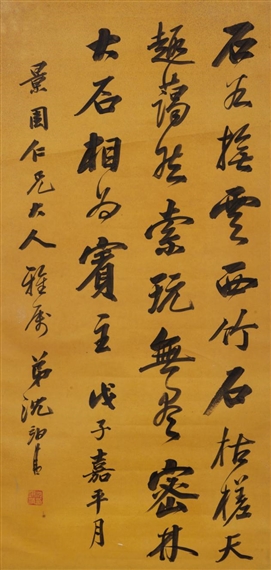 石谷撫雲西竹石枯槎天
趣藹然索玩無盡密林
大石相為賓主戊子嘉平月
景園仁兄大人雅屬弟沈翊清